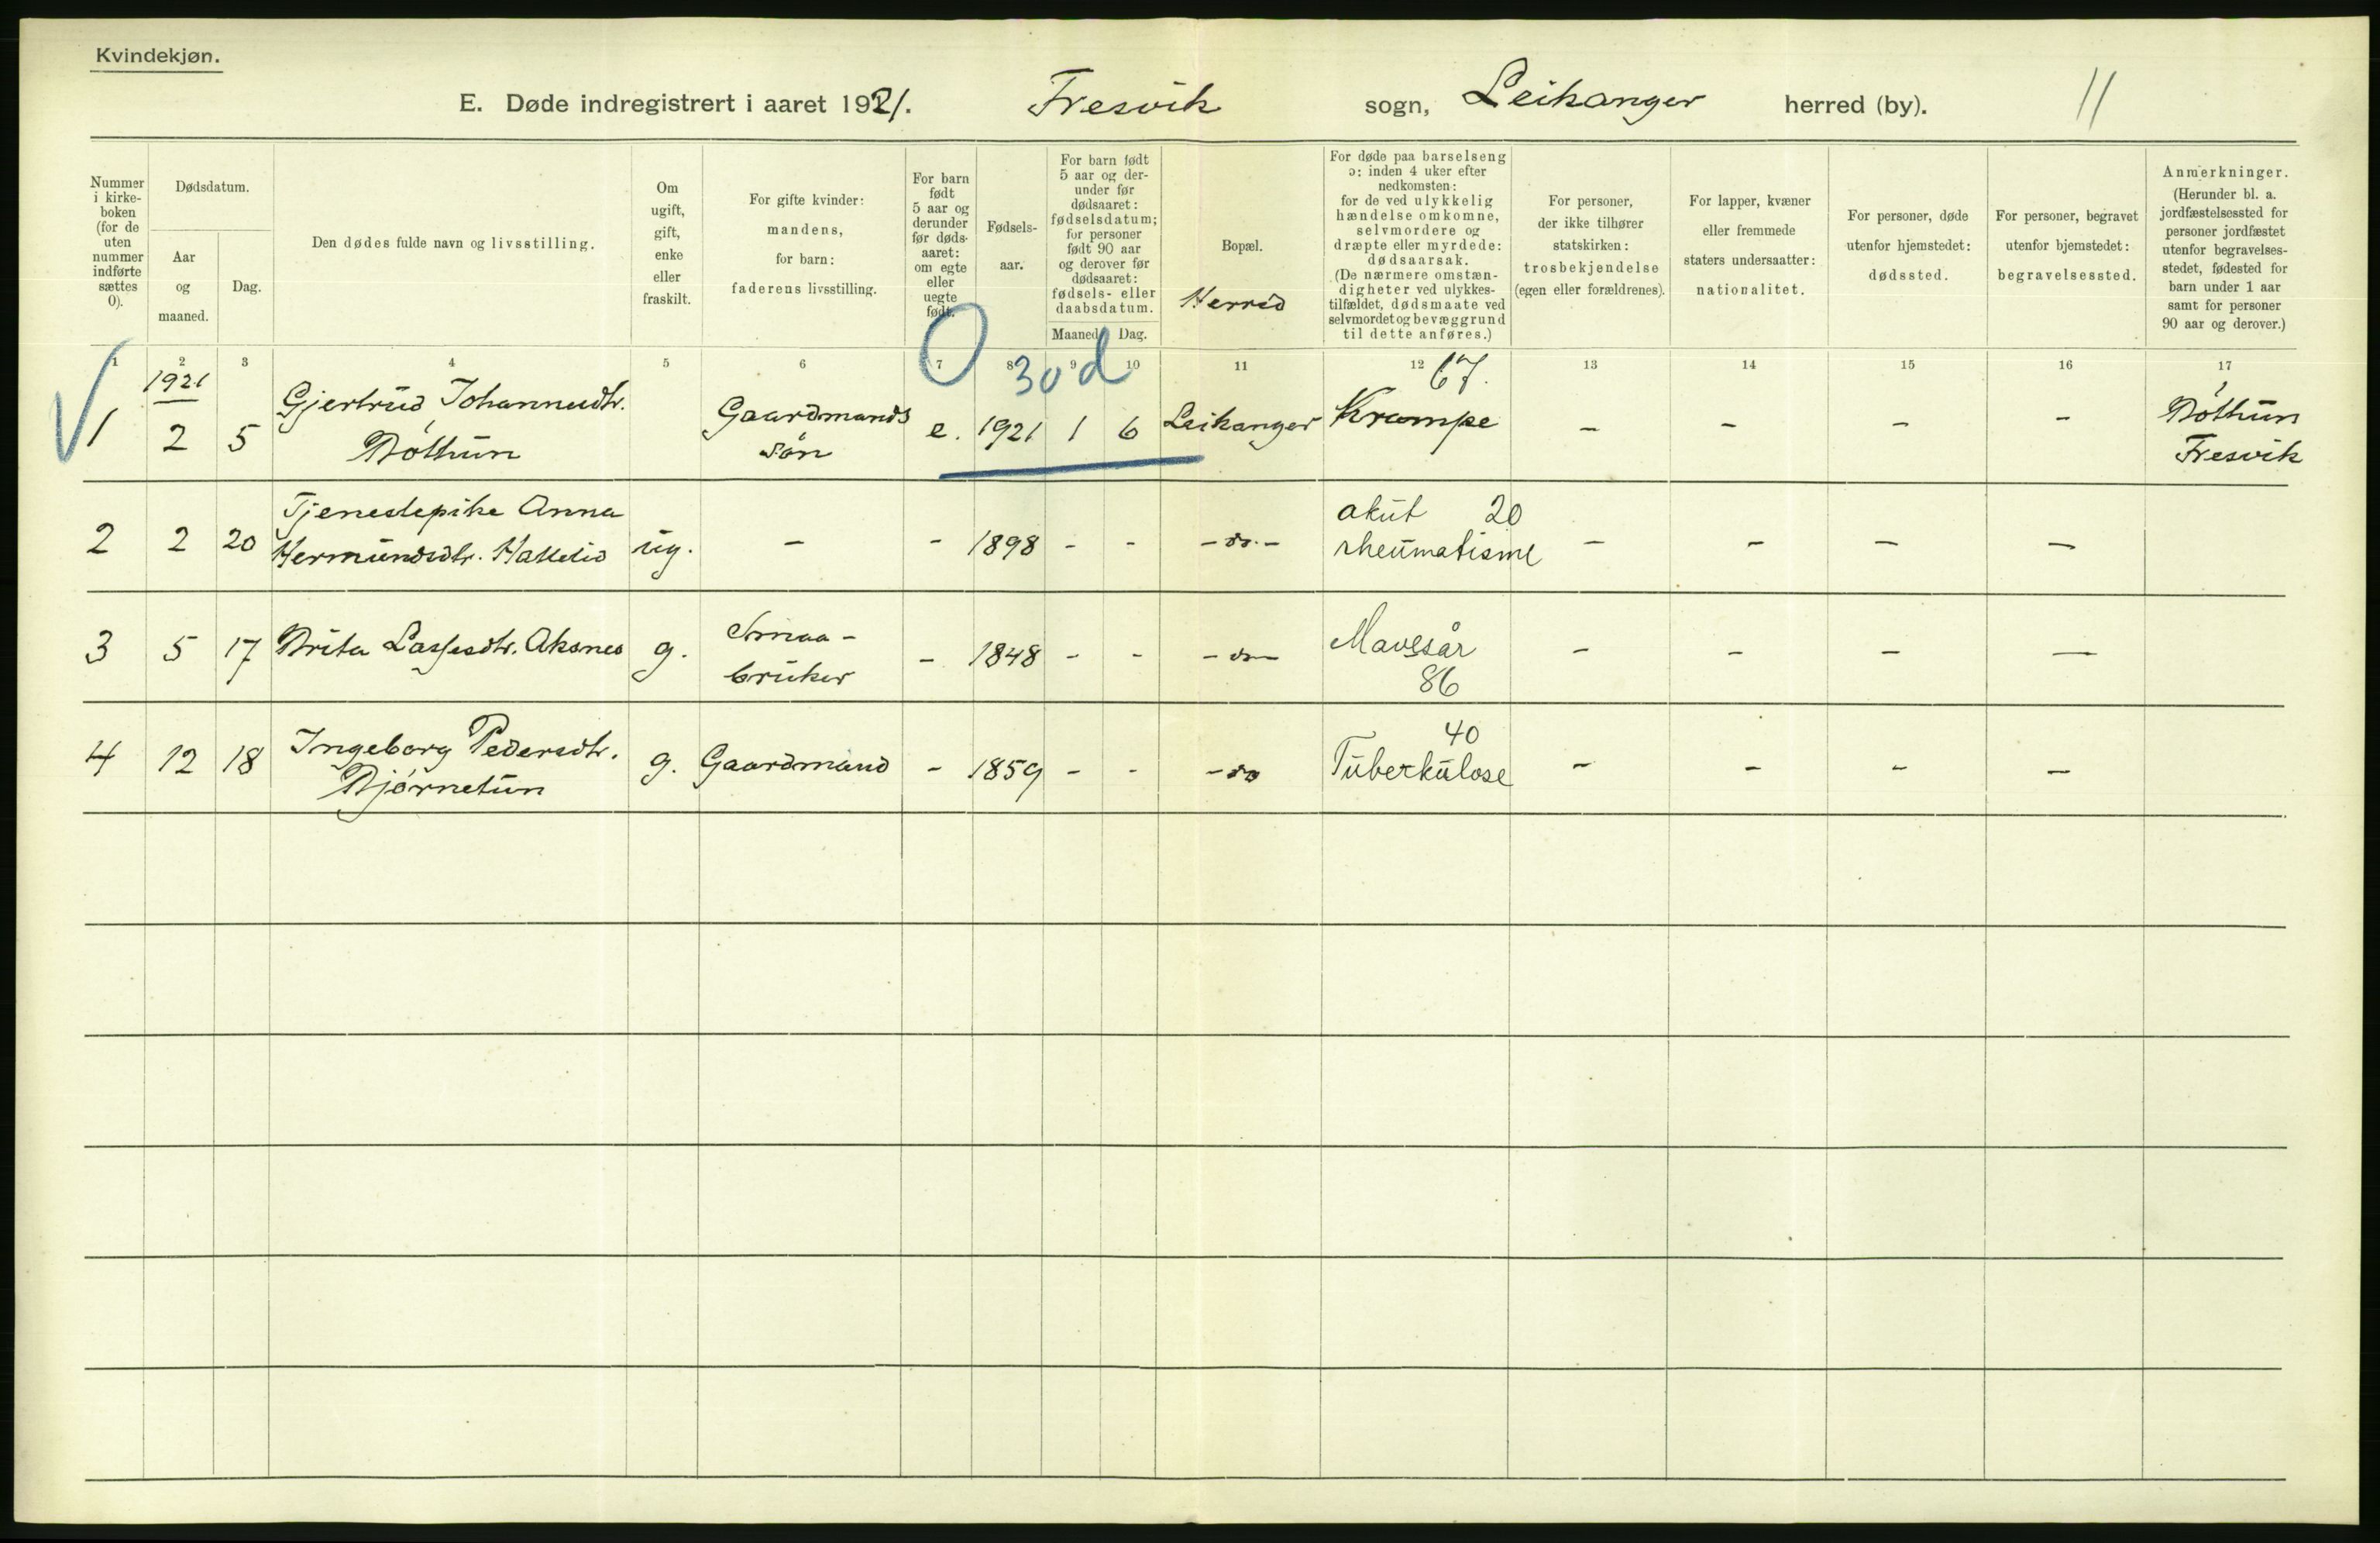 Kvindekjøn.
E. Døde indregistrert i aaret 1921. Fresvik sogn, Leikanger herred (by). 11
Nummer i kirke-boken (for de uten nummer indførte sættes 0).
Dødsdatum.
Aar og maaned.
Dag.
Den dødes fulde navn og livsstilling.
Om ugift, gift, enke eller fraskilt.
For gifte kvinder: mandens, for barn: faderens livsstilling.
For barn født 5 aar og derunder før døds-aaret: om egte eller uegte født.
Fødsels-aar.
For barn født 5 aar og der-under før dødsaaret: fødselsdatum; for personer født 90 aar og derover før dødsaaret: fødsels- eller daabsdatum.
Maaned. Dag.
Bopæl.
Herred
For døde paa barselseng ɔ: inden 4 uker efter nedkomsten: for de ved ulykkelig hændelse omkomne, selvmordere og dræpte eller myrdede: dødsaarsak. (De nærmere omstæn-digheter ved ulykkes-tilfældet, dødsmaate ved selvmordet og bevæggrund til dette anføres.)
For personer, der ikke tilhører statskirken: trosbekjendelse (egen eller forældrenes).
For lapper, kvæner eller fremmede staters undersaatter: nationalitet.
For personer, døde utenfor hjemstedet: dødssted.
For personer, begravet utenfor bjemstedet: begravelsessted.
Anmerkninger. (Herunder bl. a. jordfæstelsessted for personer jordfæstet utenfor begravelses-stedet, fødested for barn under 1 aar samt for personer 90 aar og derover.)
1 2 3 4 5 6 7 8 9 10 11 12 13 14 15 16 17
1921 0 30 d 67.
1 2 5 Gjertrud Johannesdtr. Bóthun Gaardmands søn e. 1921 1 6 Leikanger Krampe - - - - Bóthun Fresvik
2 2 20 Tjenestepike Anna Hermundsdtr. Hattelid ug. - - 1898 - - - do. - akut 20 rheumatisme - - - -
3 5 17 Brita Lassesdtr. Aksnes g. Smaa-bruker - 1848 - - - do - Mavesår 86 - - - -
4 12 18 Ingeborg Pedersdtr. Bjórnetun g. Gaardmand - 1859 - - - do 40 Tuberkulose - - - -